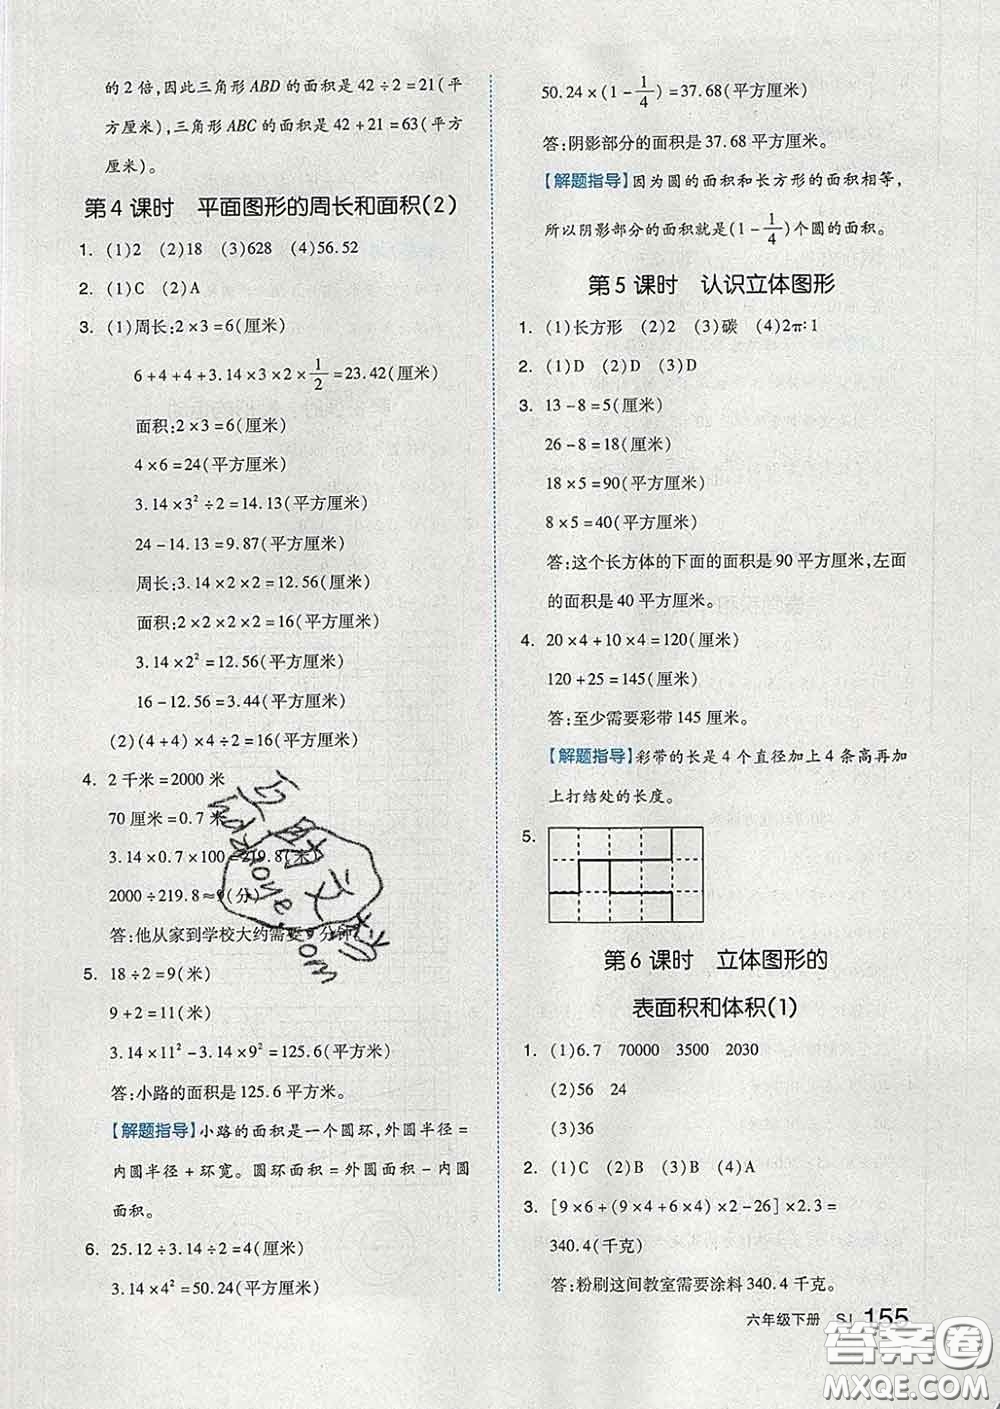 的2倍,因此三角形ABD的面积是42÷2=21(平
方厘米),三角形ABC的面积是42+21=63(平方
厘米)。
第4课时 平面图形的周长和面积(2)
1. (1)2 (2)18 (3)628 (4)56.52
2. (1)C (2)A
3. (1)周长:2×3=6(厘米)
6+4+4+3.14×3×2×1/2=23.42(厘米)
面积:2×3=6(厘米)
4×6=24(平方厘米)
3.14×3²÷2=14.13(平方厘米)
24-14.13=9.87(平方厘米)
周长:3.14×2×2=12.56(厘米)
面积:2×2×2×2=16(平方厘米)
3.14×2²=12.56(平方厘米)
16-12.56=3.44(平方厘米)
(2)(4+4)×4÷2=16(平方厘米)
4. 2千米=2000米
70厘米=0.7米
3.14×0.7×100=219.8(米)
2000÷219.8≈9(分)
答:他从家到学校大约需要9分钟。
5. 18÷2=9(米)
9+2=11(米)
3.14×11²-3.14×9²=125.6(平方米)
答:小路的面积是125.6平方米。
【解题指导】小路的面积是一个圆环,外圆半径=
内圆半径+环宽。圆环面积=外圆面积-内圆
面积。
6. 25.12÷3.14÷2=4(厘米)
3.14×4²=50.24(平方厘米)
50.24×(1-1/4)=37.68(平方厘米)
答:阴影部分的面积是37.68平方厘米。
【解题指导】因为圆的面积和长方形的面积相等,
所以阴影部分的面积就是(1-1/4)个圆的面积。
第5课时 认识立体图形
1. (1)长方形 (2)2 (3)碳 (4)2π∶1
2. (1)D (2)D (3)D
3. 13-8=5(厘米)
26-8=18(厘米)
18×5=90(平方厘米)
8×5=40(平方厘米)
答:这个长方体的下面的面积是90平方厘米,左面
的面积是40平方厘米。
4. 20×4+10×4=120(厘米)
120+25=145(厘米)
答:至少需要彩带145厘米。
【解题指导】彩带的长是4个直径加上4条高再加
上打结处的长度。
5.
第6课时 立体图形的
表面积和体积(1)
1. (1)6.7 70000 3500 2030
(2)56 24
(3)36
2. (1)C (2)B (3)B (4)A
3. [9×6+(9×4+6×4)×2-26]×2.3=
340.4(千克)
答:粉刷这间教室需要涂料340.4千克。
六年级下册 SJ 155
答案圈
MXQE.COM